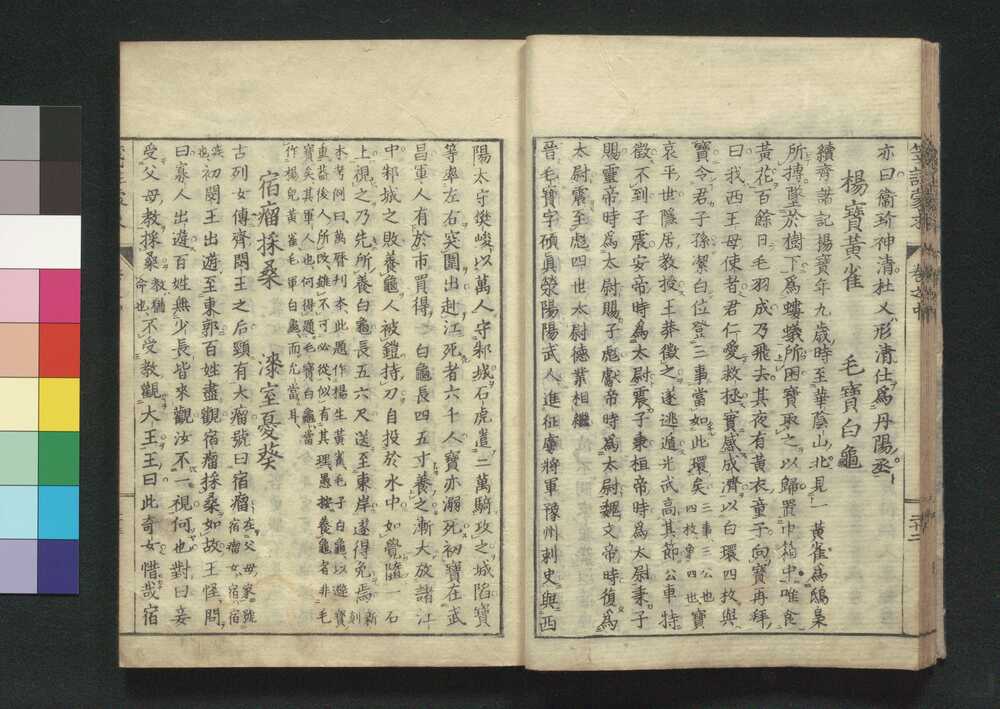 亦曰衞玠神清杜乂形清仕爲丹陽丞
楊寶黃雀　毛寶白龜
續齊諧記楊寶年九歲時至華陰山北見一黃雀爲鴟梟
所搏墜於樹下爲螻蟻所困寶取之以歸置巾箱中唯食
黃花百餘日毛羽成乃飛去其夜有黃衣童子向寶再拜
曰我西王母使者君仁愛救拯寶感成濟以白環四枚與
寶令君子孫潔白位登三事當如此環矣三事三公也四枚掌四也寶
哀平世隱居教授王莽徵之遂逃遁光武高其節公車特
徵不到子震安帝時爲太尉震子秉桓帝時爲太尉秉子
賜靈帝時爲太尉賜子彪獻帝時爲太尉魏文帝時復爲
太尉震至彪四世太尉德業相繼
晉毛寶字碩眞滎陽陽武人進征虜將軍豫州刺史與西
陽太守樊峻以萬人守邾城石虎遣二萬騎攻之城陷寶
等率左右突圍出赴江死者六千人寶亦溺死初寶在武
昌軍人有於市買得一白龜長四五寸養之漸大放諸江
中邾城之敗養龜人被鎧持刀自投於水中如覺墮一石
上視之乃先所養白龜長五六尺送至東岸遂得免焉新刻
本考例曰萬曆刊本此題作楊生黃雀毛子白龜以避寶
重蓋後人所改雖不可必從似有其理愚按養龜者非毛
寶矣其軍人也何得題毛寶白龜當
作楊兒黃雀毛軍白龜而允當耳
宿瘤採桑　漆室憂葵
古列女傳齊閔王之后頸有大瘤號曰宿瘤在父母家號宿瘤女宿宿
疾也初閔王出遊至東郭百姓盡觀宿瘤採桑如故王怪問
曰寡人出遊百姓無少長皆來觀汝不一視何也對曰妾
受父母教採桑教猶命也不受教觀大王王曰此奇女惜哉宿